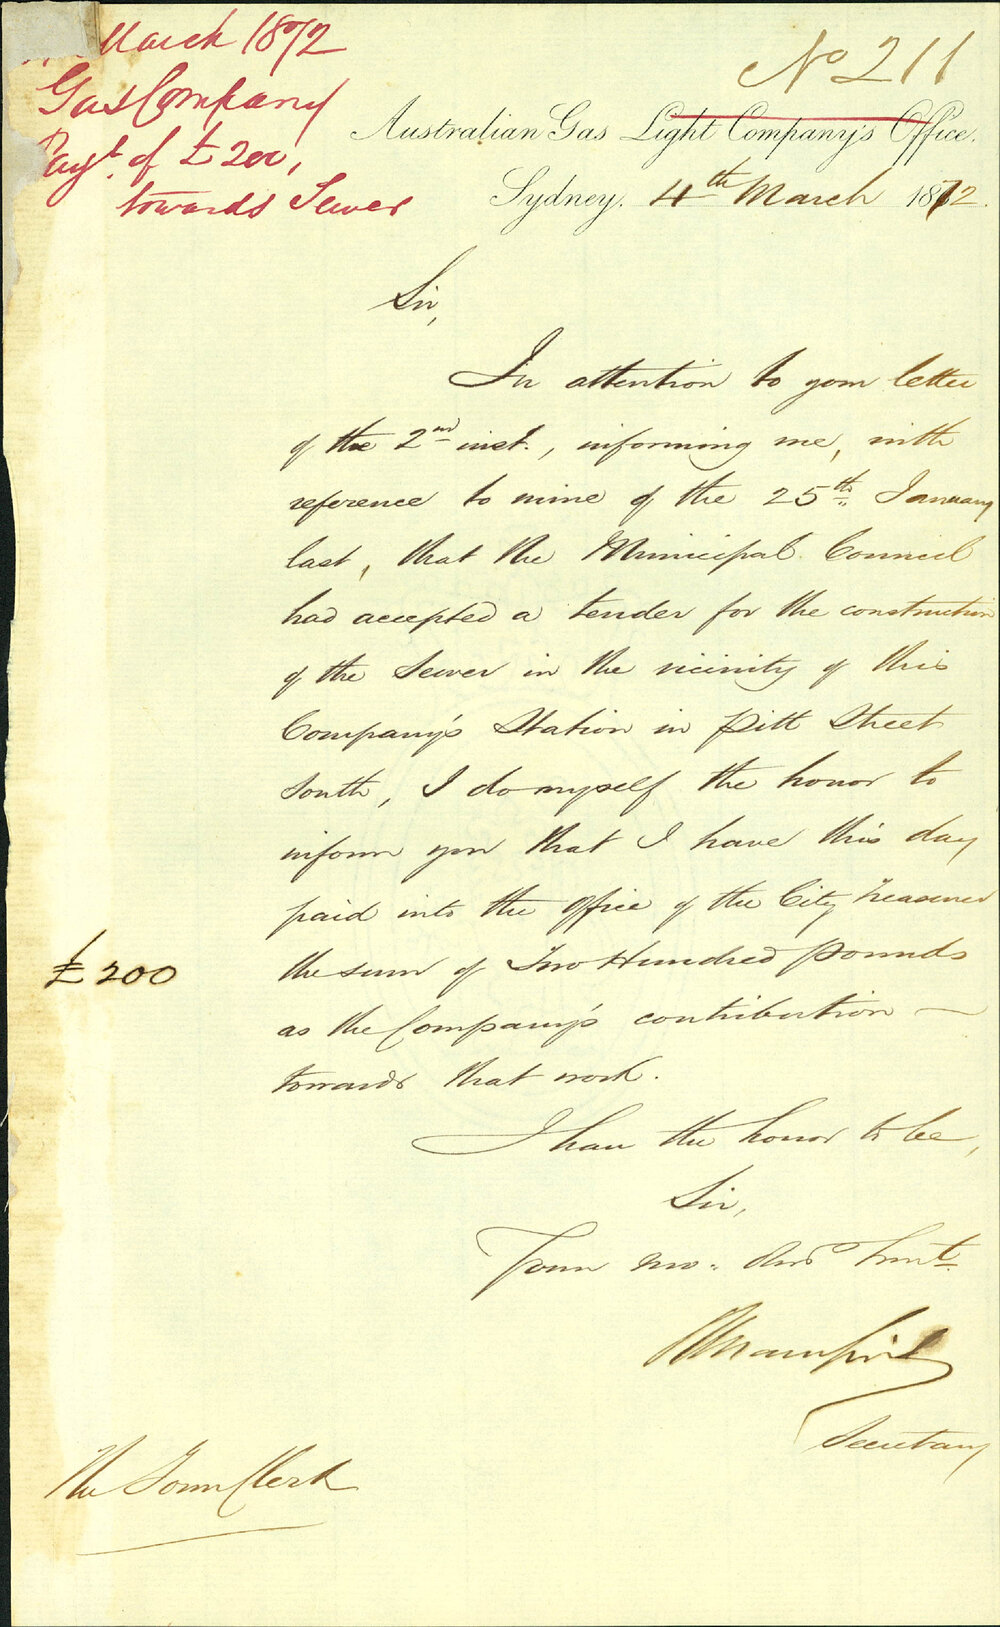 March 1872
Gas Company
Payt. of £200,
towards Sewer
No 211
Australian Gas Light Company's Office.
Sydney. 4th March 1872.
Sir,
In attention to your letter
of the 2nd inst., informing me, with
reference to mine of the 25th January
last, that the Municipal Council
had accepted a tender for the construction
of the Sewer in the vicinity of this
Company's Station in Pitt Street
South, I do myself the honor to
inform you that I have this day
paid into the Office of the City Treasurer
£200 the sum of Two Hundred pounds
as the Company's contribution —
towards that work.
I have the honor to be,
Sir,
Your mo. Obt Servt.
Secretary
The Town Clerk